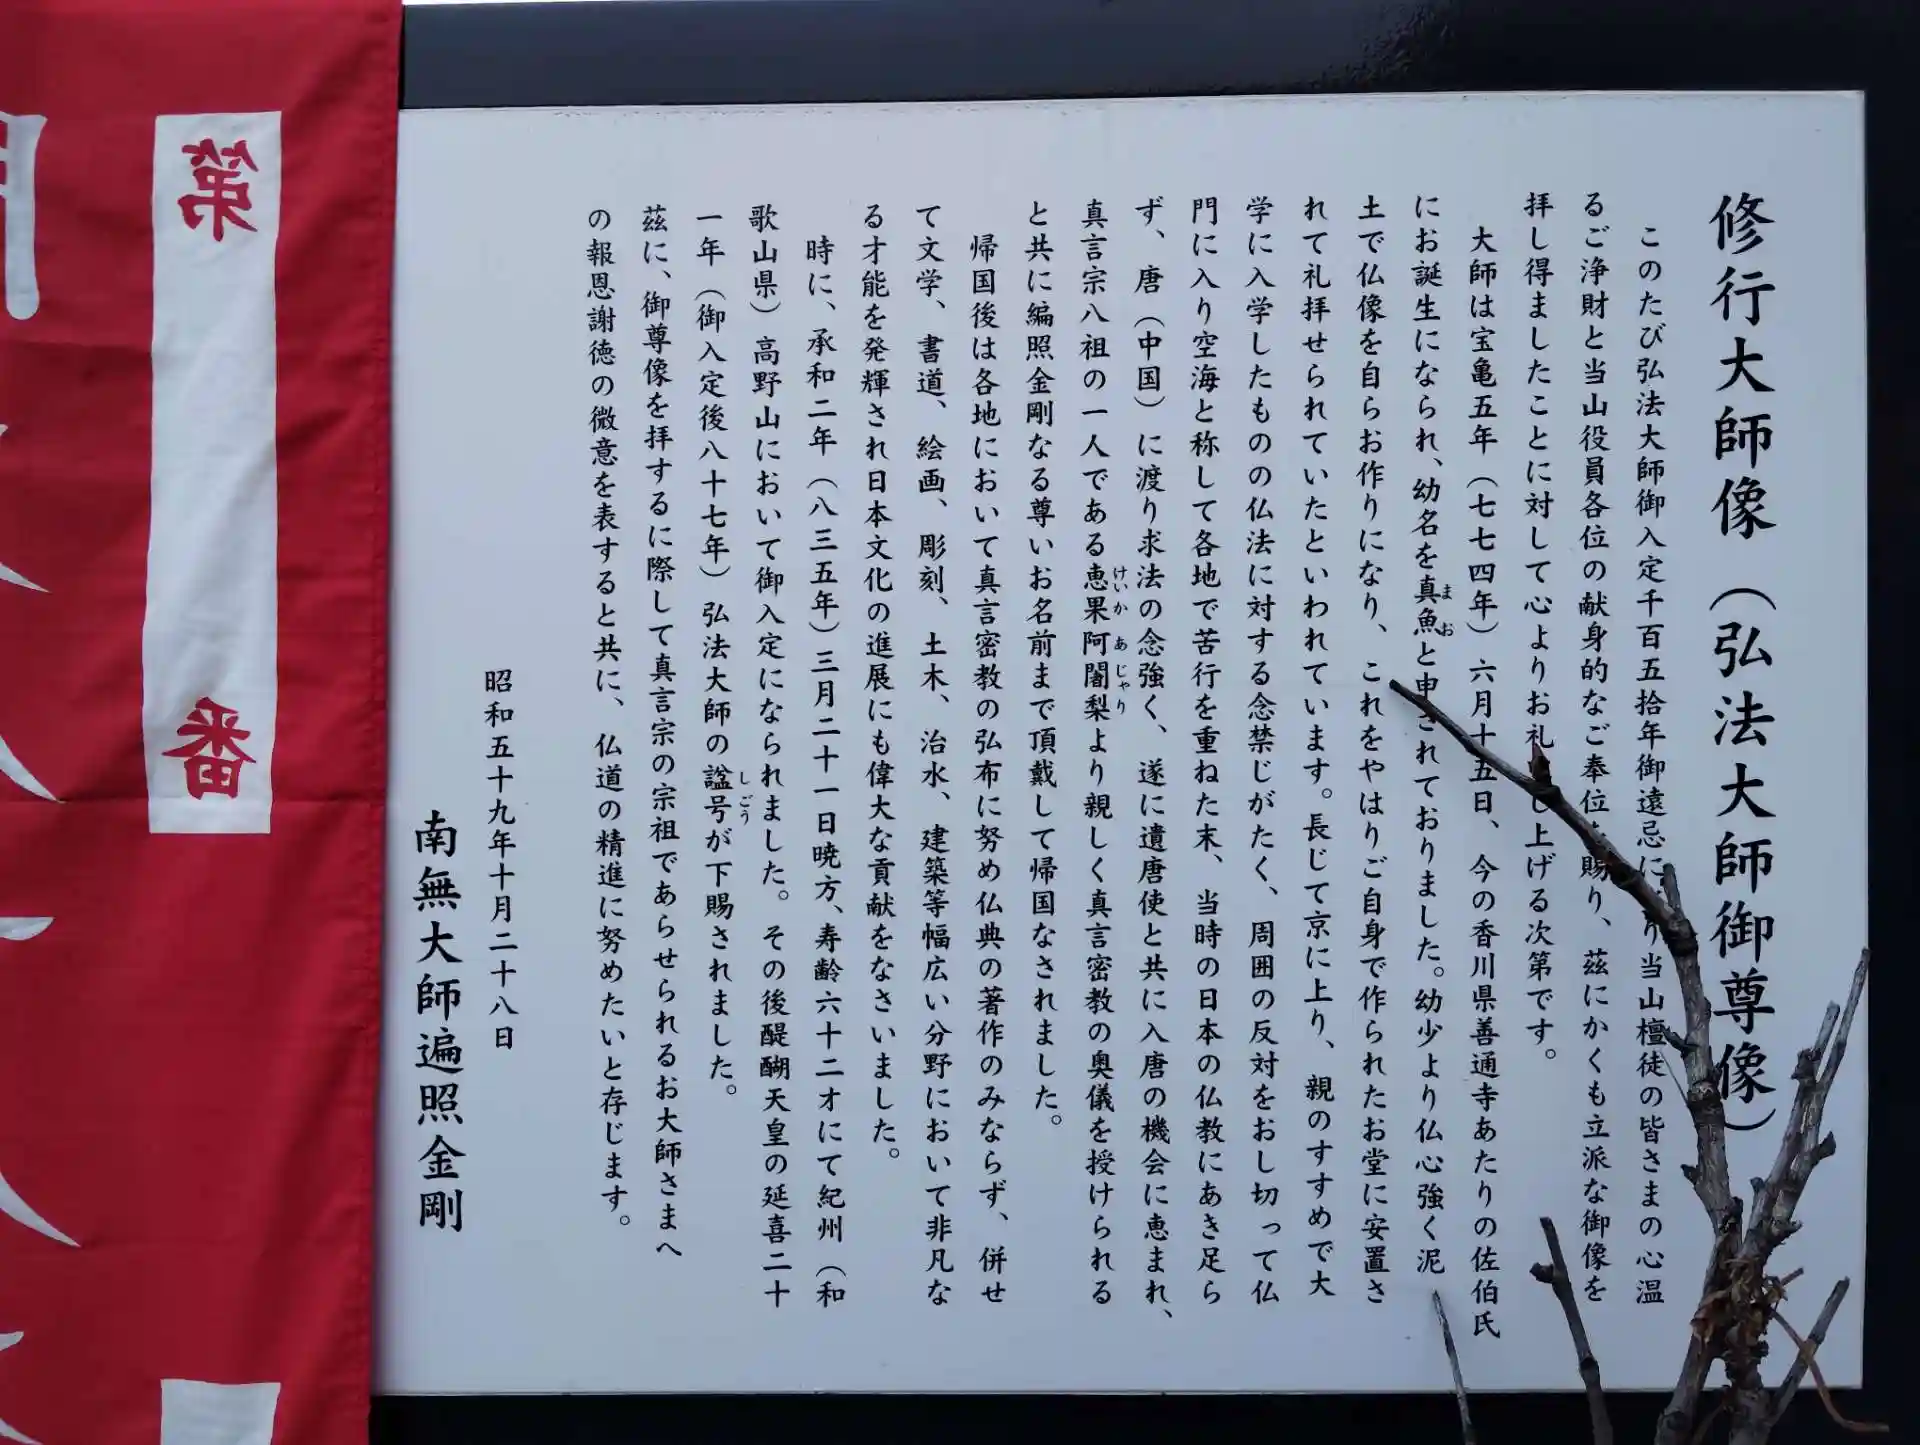 修行大師像（弘法大師御尊像）
このたび弘法大師御入定千百五拾年御遠忌に り当山檀徒の皆さまの心温
るご浄財と当山役員各位の献身的なご奉位 賜り、茲にかくも立派な御像を
拝し得ましたことに対して心よりお礼 し上げる次第です。
大師は宝亀五年（七七四年）六月十五日、今の香川県善通寺あたりの佐伯氏
にお誕生になられ、幼名を真魚と申されておりました。幼少より仏心強く泥
まお
土で仏像を自らお作りになり、これをやはりご自身で作られたお堂に安置さ
れて礼拝せられていたといわれています。長じて京に上り、親のすすめで大
学に入学したものの仏法に対する念禁じがたく、周囲の反対をおし切って仏
門に入り空海と称して各地で苦行を重ねた末、当時の日本の仏教にあき足ら
ず、唐（中国）に渡り求法の念強く、遂に遺唐使と共に入唐の機会に恵まれ、
真言宗八祖の一人である恵果阿闍梨より親しく真言密教の奥儀を授けられる
けいか あじゃり
と共に編照金剛なる尊いお名前まで頂戴して帰国なされました。
帰国後は各地において真言密教の弘布に努め仏典の著作のみならず、併せ
て文学、書道、絵画、彫刻、土木、治水、建築等幅広い分野において非凡な
る才能を発輝され日本文化の進展にも偉大な貢献をなさいました。
時に、承和二年（八三五年）三月二十一日暁方、寿齢六十二才にて紀州（和
歌山県）高野山において御入定になられました。その後醍醐天皇の延喜二十
一年（御入定後八十七年）弘法大師の諡号が下賜されました。
しごう
茲に、御尊像を拝するに際して真言宗の宗祖であらせられるお大師さまへ
の報恩謝徳の微意を表すると共に、仏道の精進に努めたいと存じます。
昭和五十九年十月二十八日
南無大師遍照金剛
第 番